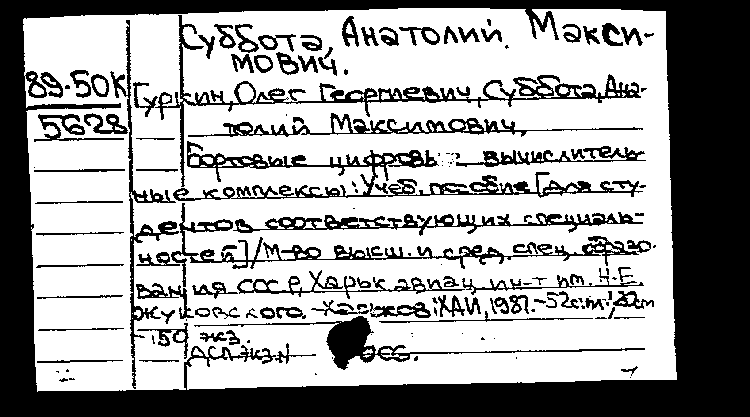 Суббота, Анатолий Макси-
мович.
89-50К
5628
Гуркин, Олег Георгиевич, Суббота, Ана-
толий Максимович,
Бортовые цифровые вычислитель-
ные комплексы: Учеб. пособие [для сту-
дентов соответствующих специаль-
ностей] / М-во высш. и сред. спец. образо-
вания СССР, Харьк. авиац. ин-т им. Н.Е.
Жуковского. - Харьков: ХАИ, 1987. - 52с.: ил.; 22см
- 150 экз.
ДСП. экз. N